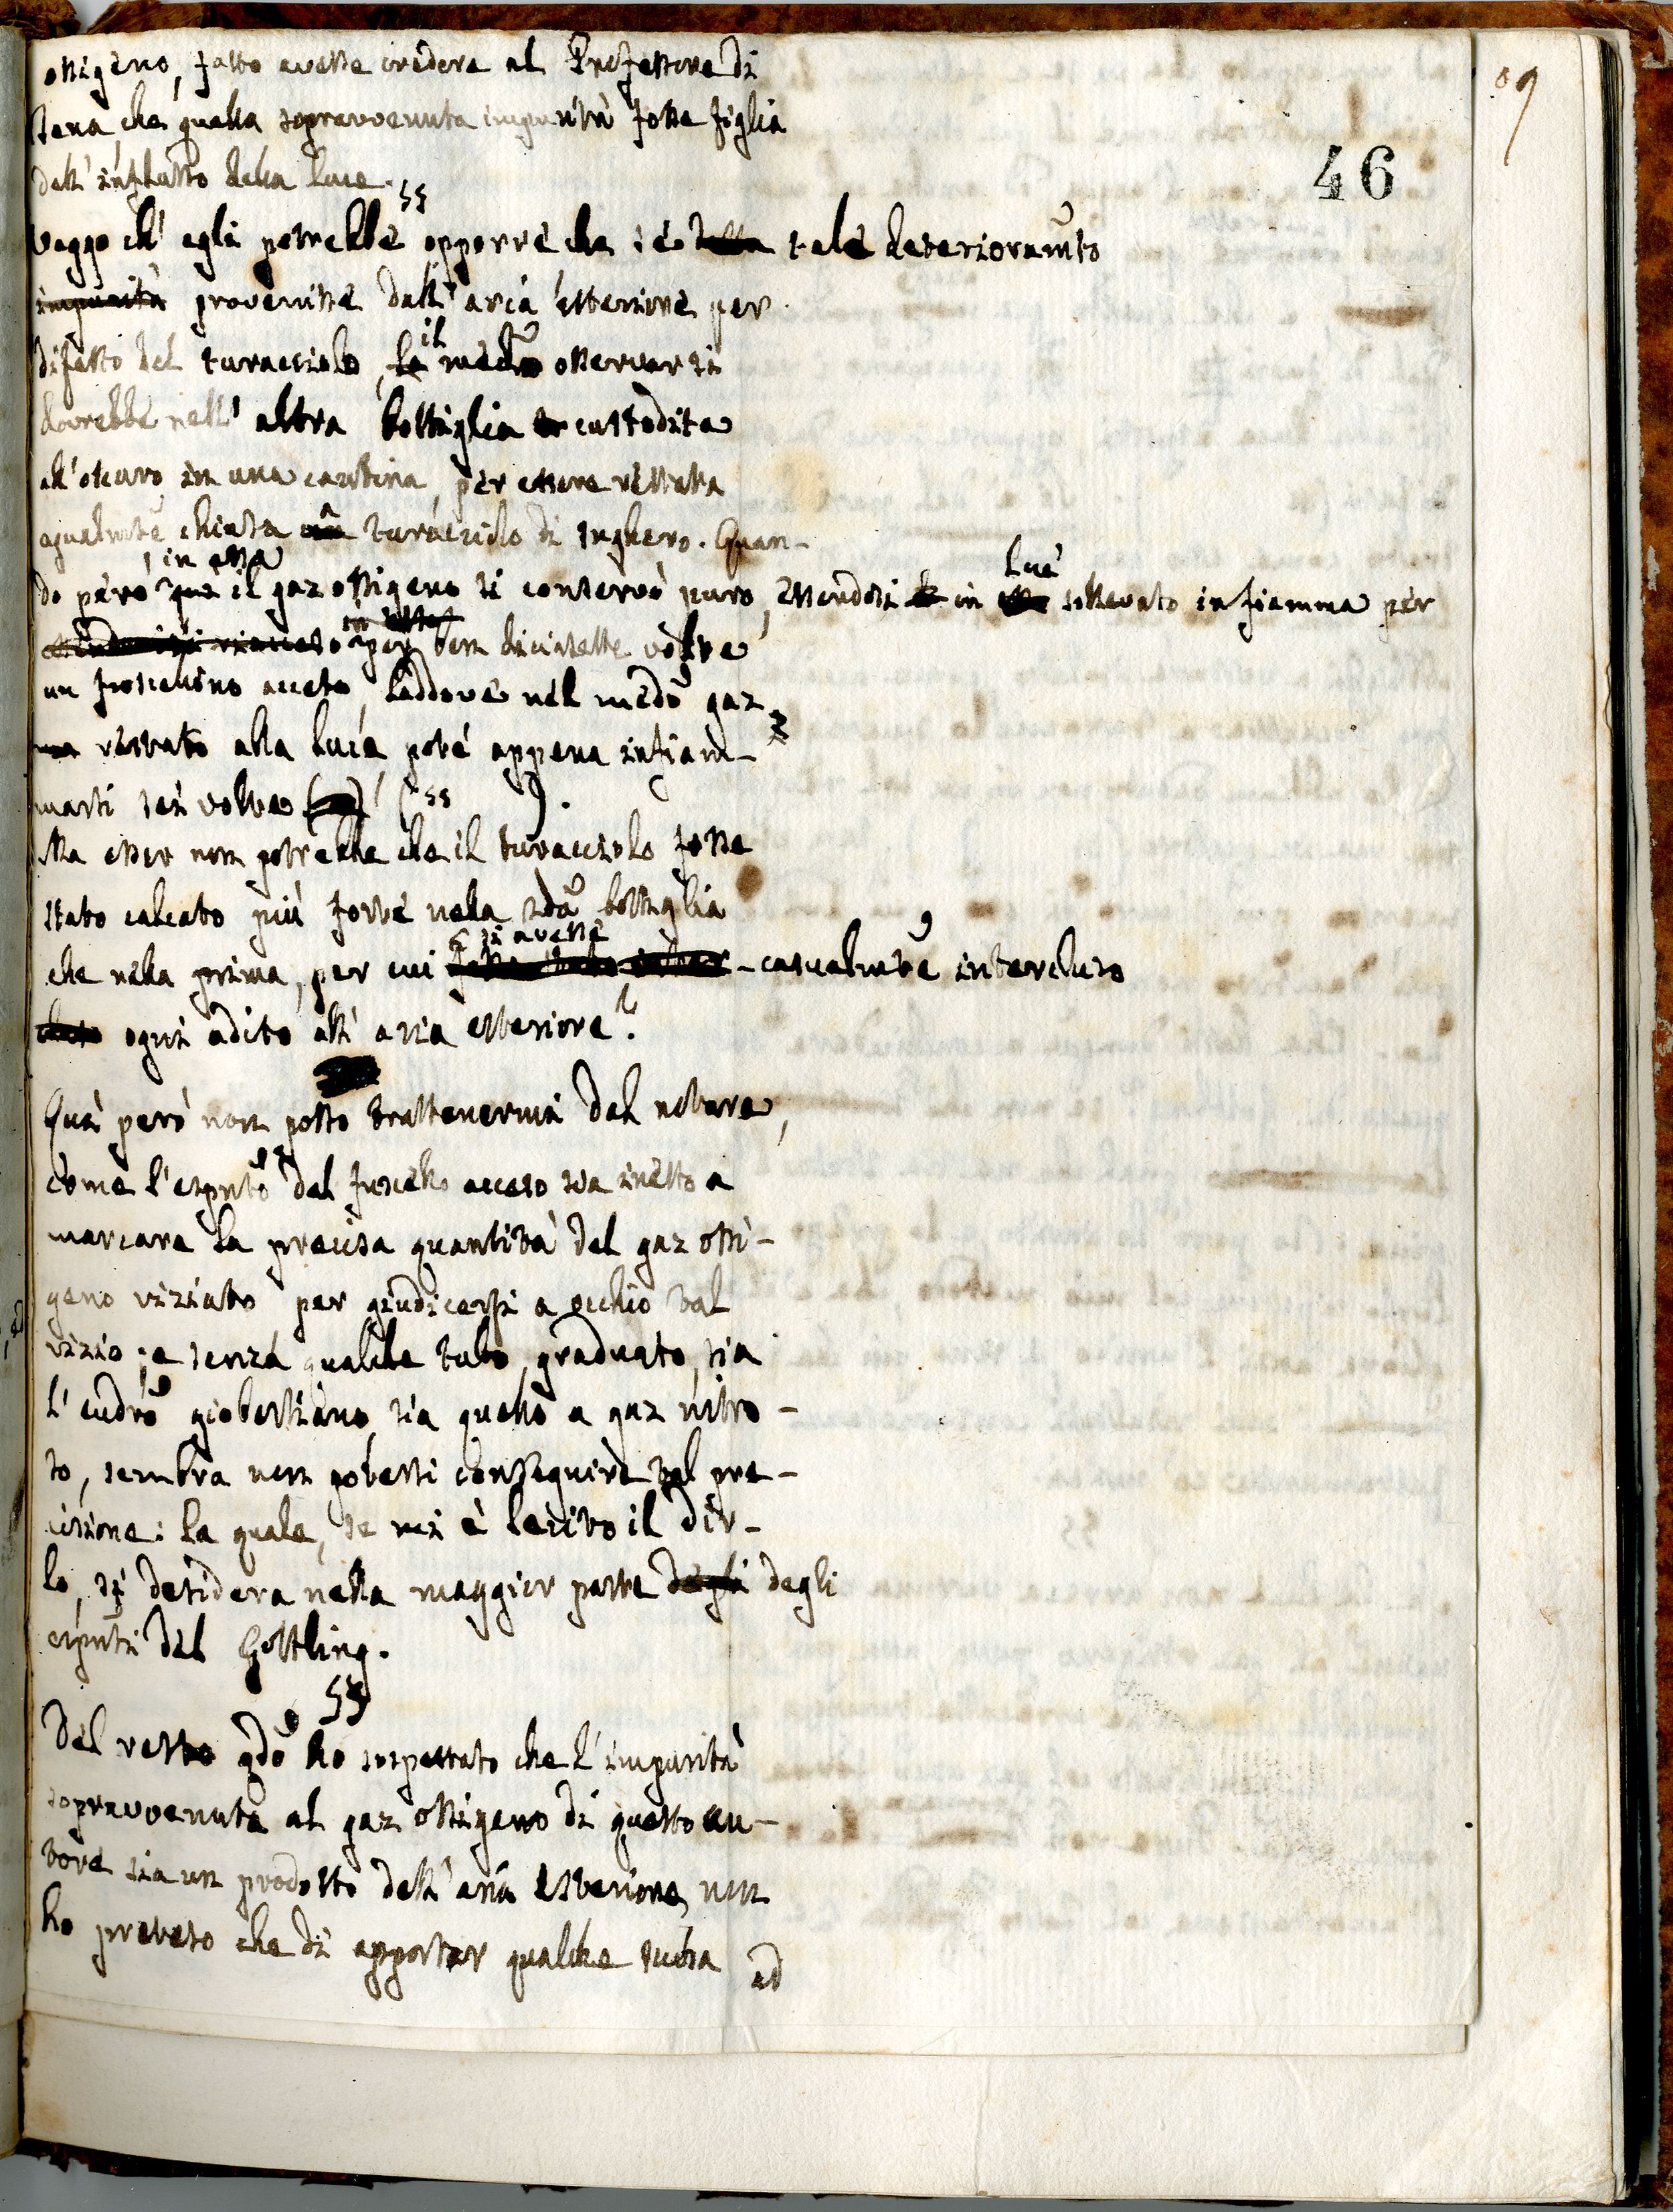 89
46
ossigeno, fatto avesse credere al Professore di
Jena che quella sopravvenuta impurità fosse figlia
dell'influsso della luce.
§§
Veggo ch'egli potrebbe opporre che se tale deterioramto
impurità provenisse dall'aria esteriore per
difetto del turacciolo, il medmo osservar si
dovrebbe nell'altra bottiglia custodita
all'oscuro in una cantina, per essere restata
egualmte chiusa turacciolo di sughero. Quan-
do però in essa il gaz ossigeno si conservò puro, essendosi in sollevato in fiamma per
ben diciasette volte
un fuscellino acceso, laddove nel medo gaz
restato alla luce poté appena infiam-
marsi sei volte ( §§ ).
Ma esser non potrebbe che il turacciolo fosse
stato calcato più forte nella 2da bottiglia
che nella prima, per cui si avesse casualmte intercluso
ogni adito all'aria esteriore?
Quì però non posso trattenermi dal notare,
come l'espmto del fuscello acceso sia inetto a
marcare la precisa quantità del gaz ossi-
geno viziato per giudicarsi a occhio tal
vizio; e senza qualche tubo graduato, sia
l'eudro giobertiano, sia quello a gaz nitro-
so, sembra non potersi conseguire tal pre-
cisione: la quale, se mi è lecito il dir-
lo, si desidera nella maggior parte degli degli
espmti del Gottling.
§§
Del resto qdo ho sospettato che l'impurità
sopravvenuta al gaz ossigeno di questo au-
tore sia un prodotto dell'aria esteriore, non
ho preteso che di apportar qualche scusa ad